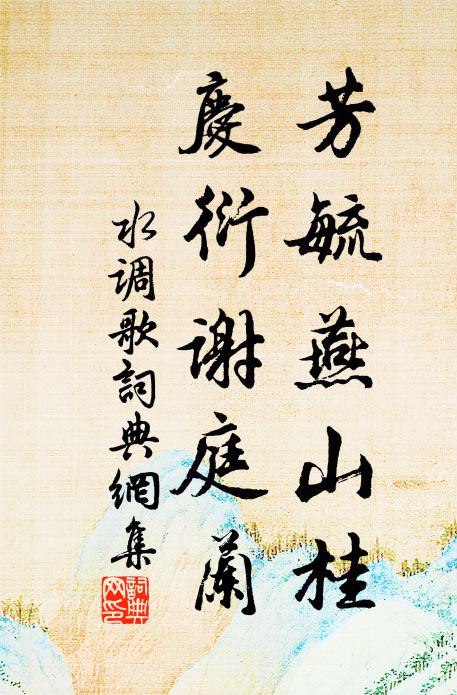 芳毓燕山桂
慶衍謝庭蘭
水調歌詞典網集
詞典